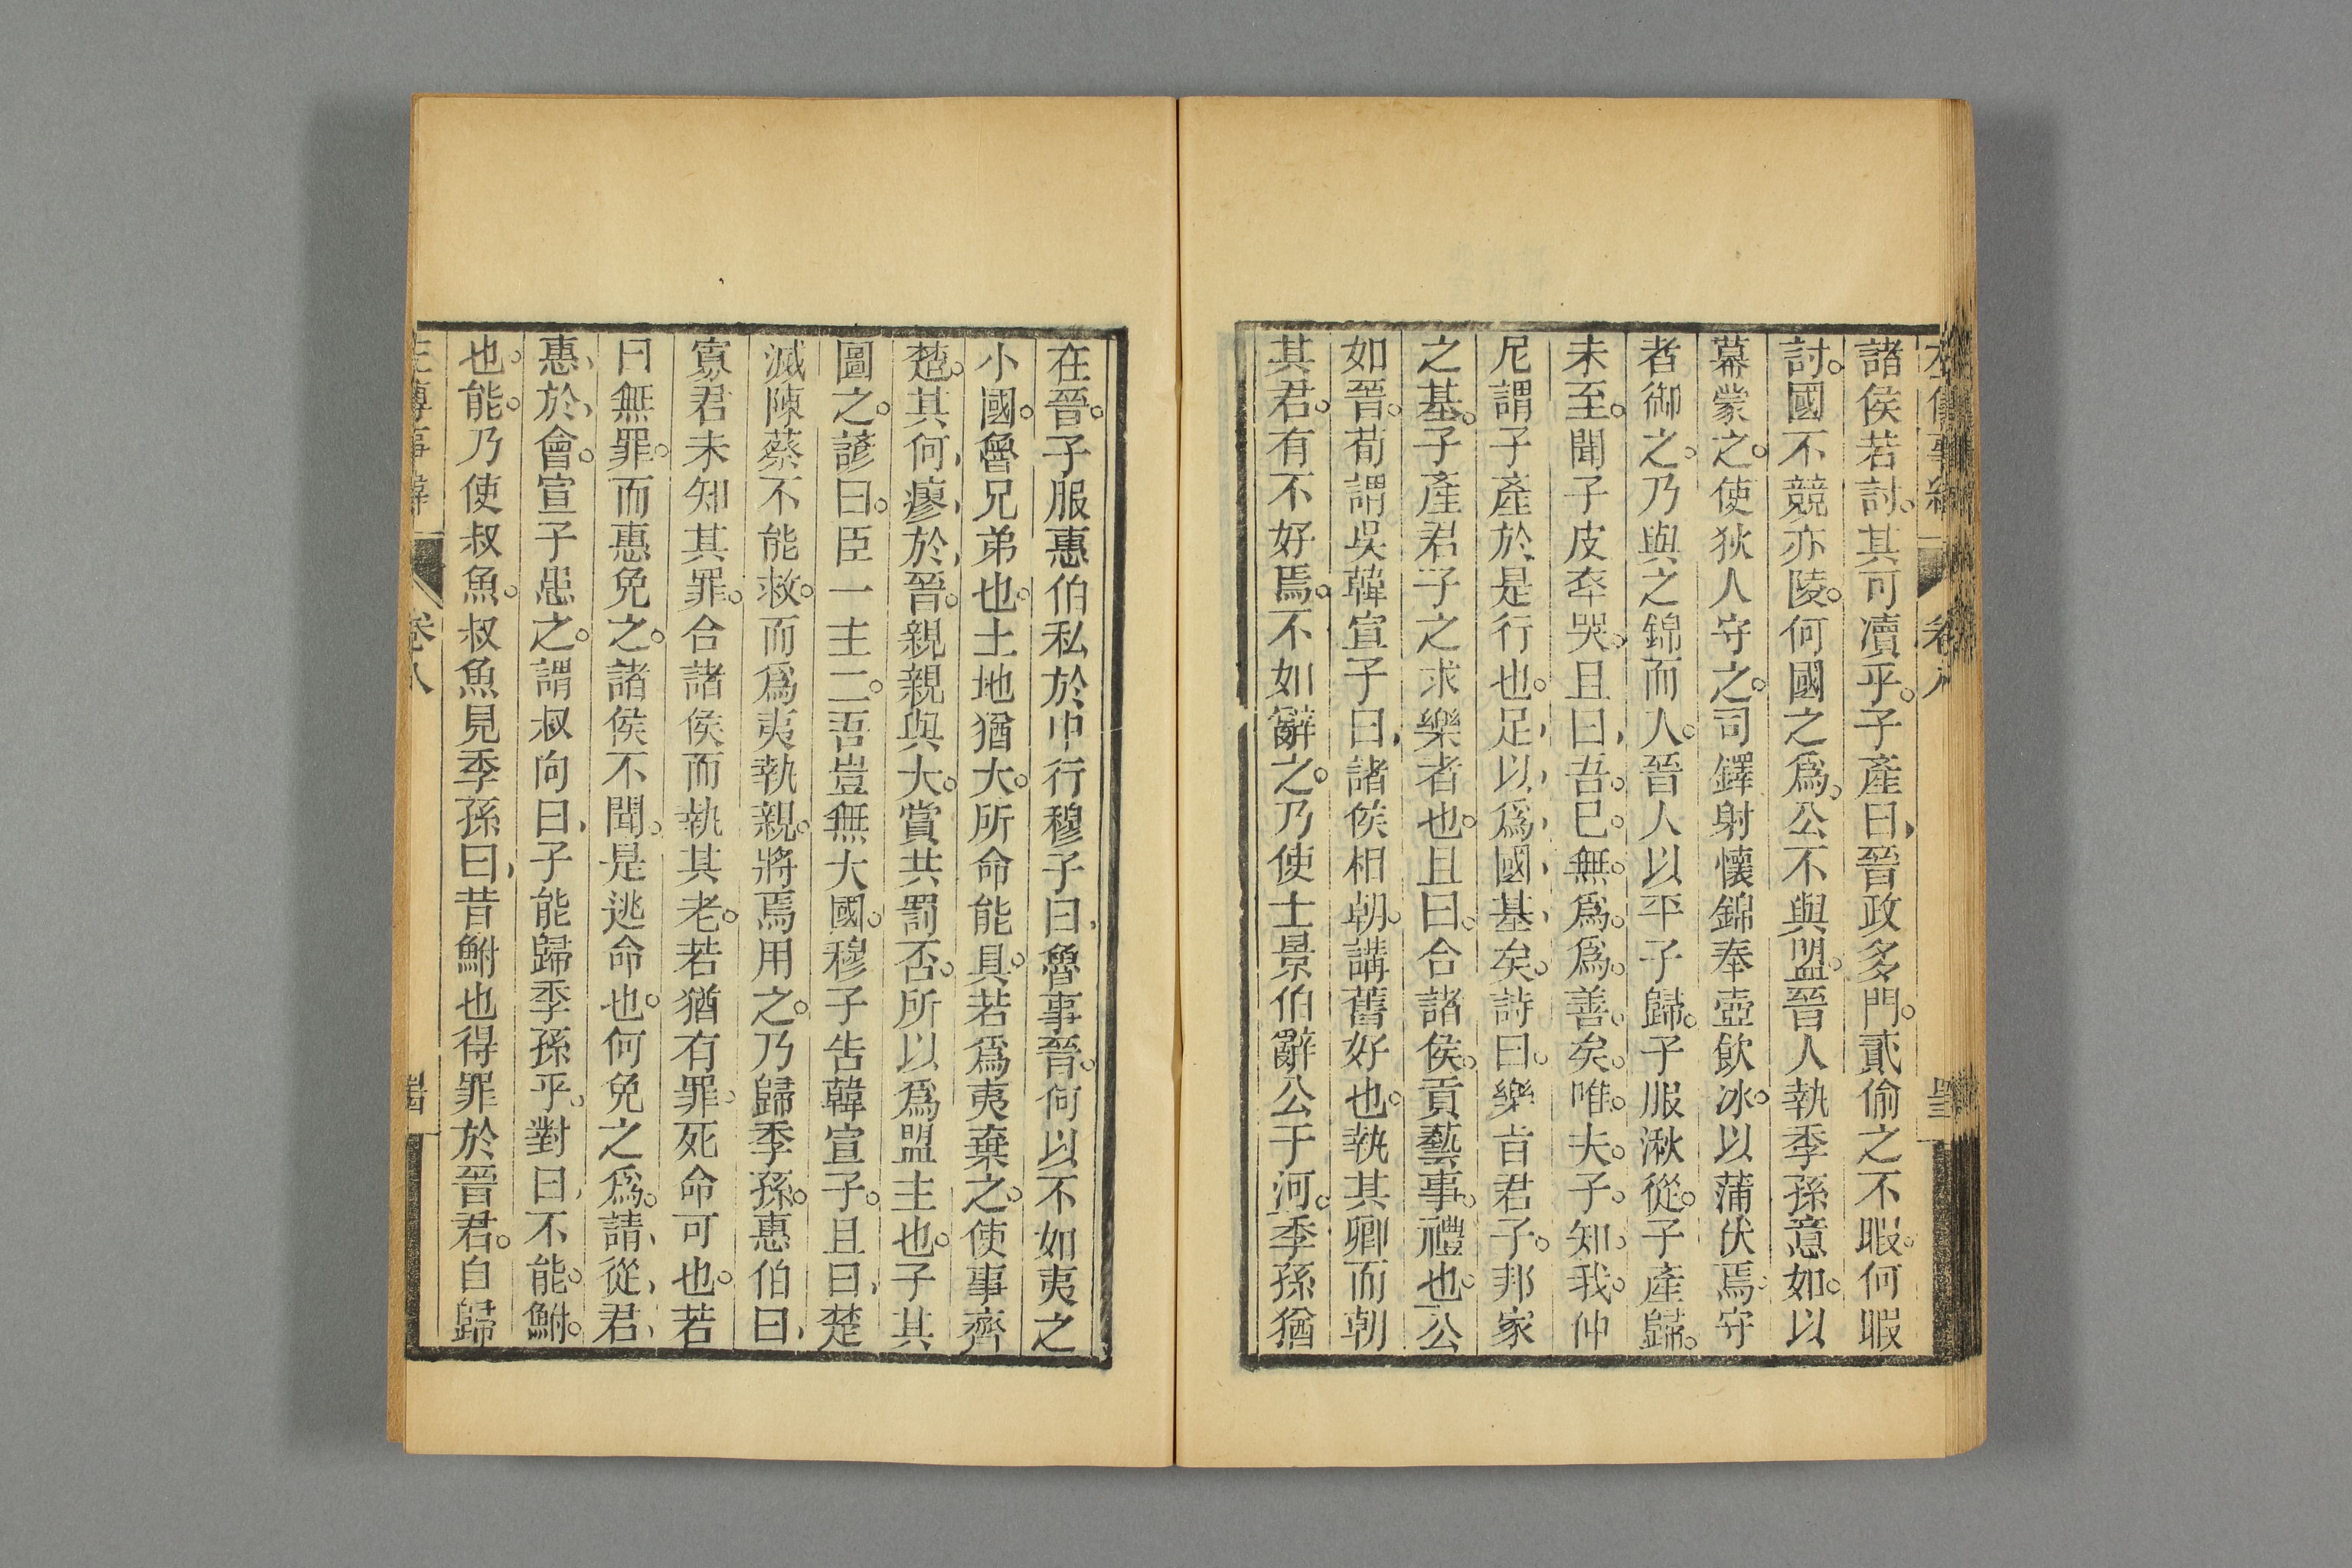 諸侯若討。其可瀆乎。子產曰，晉政多門。貳偷之不暇。何暇
討。國不競亦陵。何國之爲。公不與盟。晉人執季孫意如。以
幕蒙之。使狄人守之。司鐸射懷錦奉壺飮冰。以蒲伏焉。守
者御之。乃與之錦而入。晉人以平子歸。子服湫從。子產歸。
未至。聞子皮卒哭。且曰，吾。已。無。爲。爲。善。矣。唯。夫。子。知。我。仲
尼謂子產於是行也。足，以，爲，國，基，矣。詩曰。樂旨君子。邦家
之基。子產君子之求樂者也。且曰。合諸侯。貢藝事。禮也。公
如晉。荀謂吳韓宣子曰，諸侯相朝。講舊好也。執其卿而朝
其君。有不好焉。不如辭之。乃使士景伯辭公于河。季孫猶
在晉。子服惠伯私於中行穆子曰，魯事晉。何以不如夷之
小國。魯兄弟也。土地猶大。所命能具。若爲夷棄之。使事齊
楚。其何，瘳，於，晉。親親與大。賞共罰否。所以爲盟主也。子其
圖之。諺曰。臣一主二。吾豈無大國。穆子告韓宣子。且曰，楚
滅陳蔡不能救。而爲夷執親。將焉用之。乃歸季孫。惠伯曰，
寡君未知其罪。合諸侯而執其老。若猶有罪。死命可也。若
曰無罪。而惠免之。諸侯不聞。是逃命也。何免之爲。請，從，君，
惠，於，會。宣子患之。謂叔向曰，子能歸季孫乎。對曰，不能。鮒。
也。能。乃使叔魚。叔魚見季孫曰，昔鮒也得罪於晉君。自歸
左傳事緯
卷八